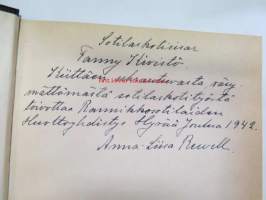 Sotilaskotisisar
Fanny Kivistö
Kiittäen uhrautuvasta, väsy
mättömästä sotilaskotityöstä
toivottaa Rannikkosotilaiden
Huoltoyhdistys Hyvää Joulua 1942.
Anna-Liisa Rewell